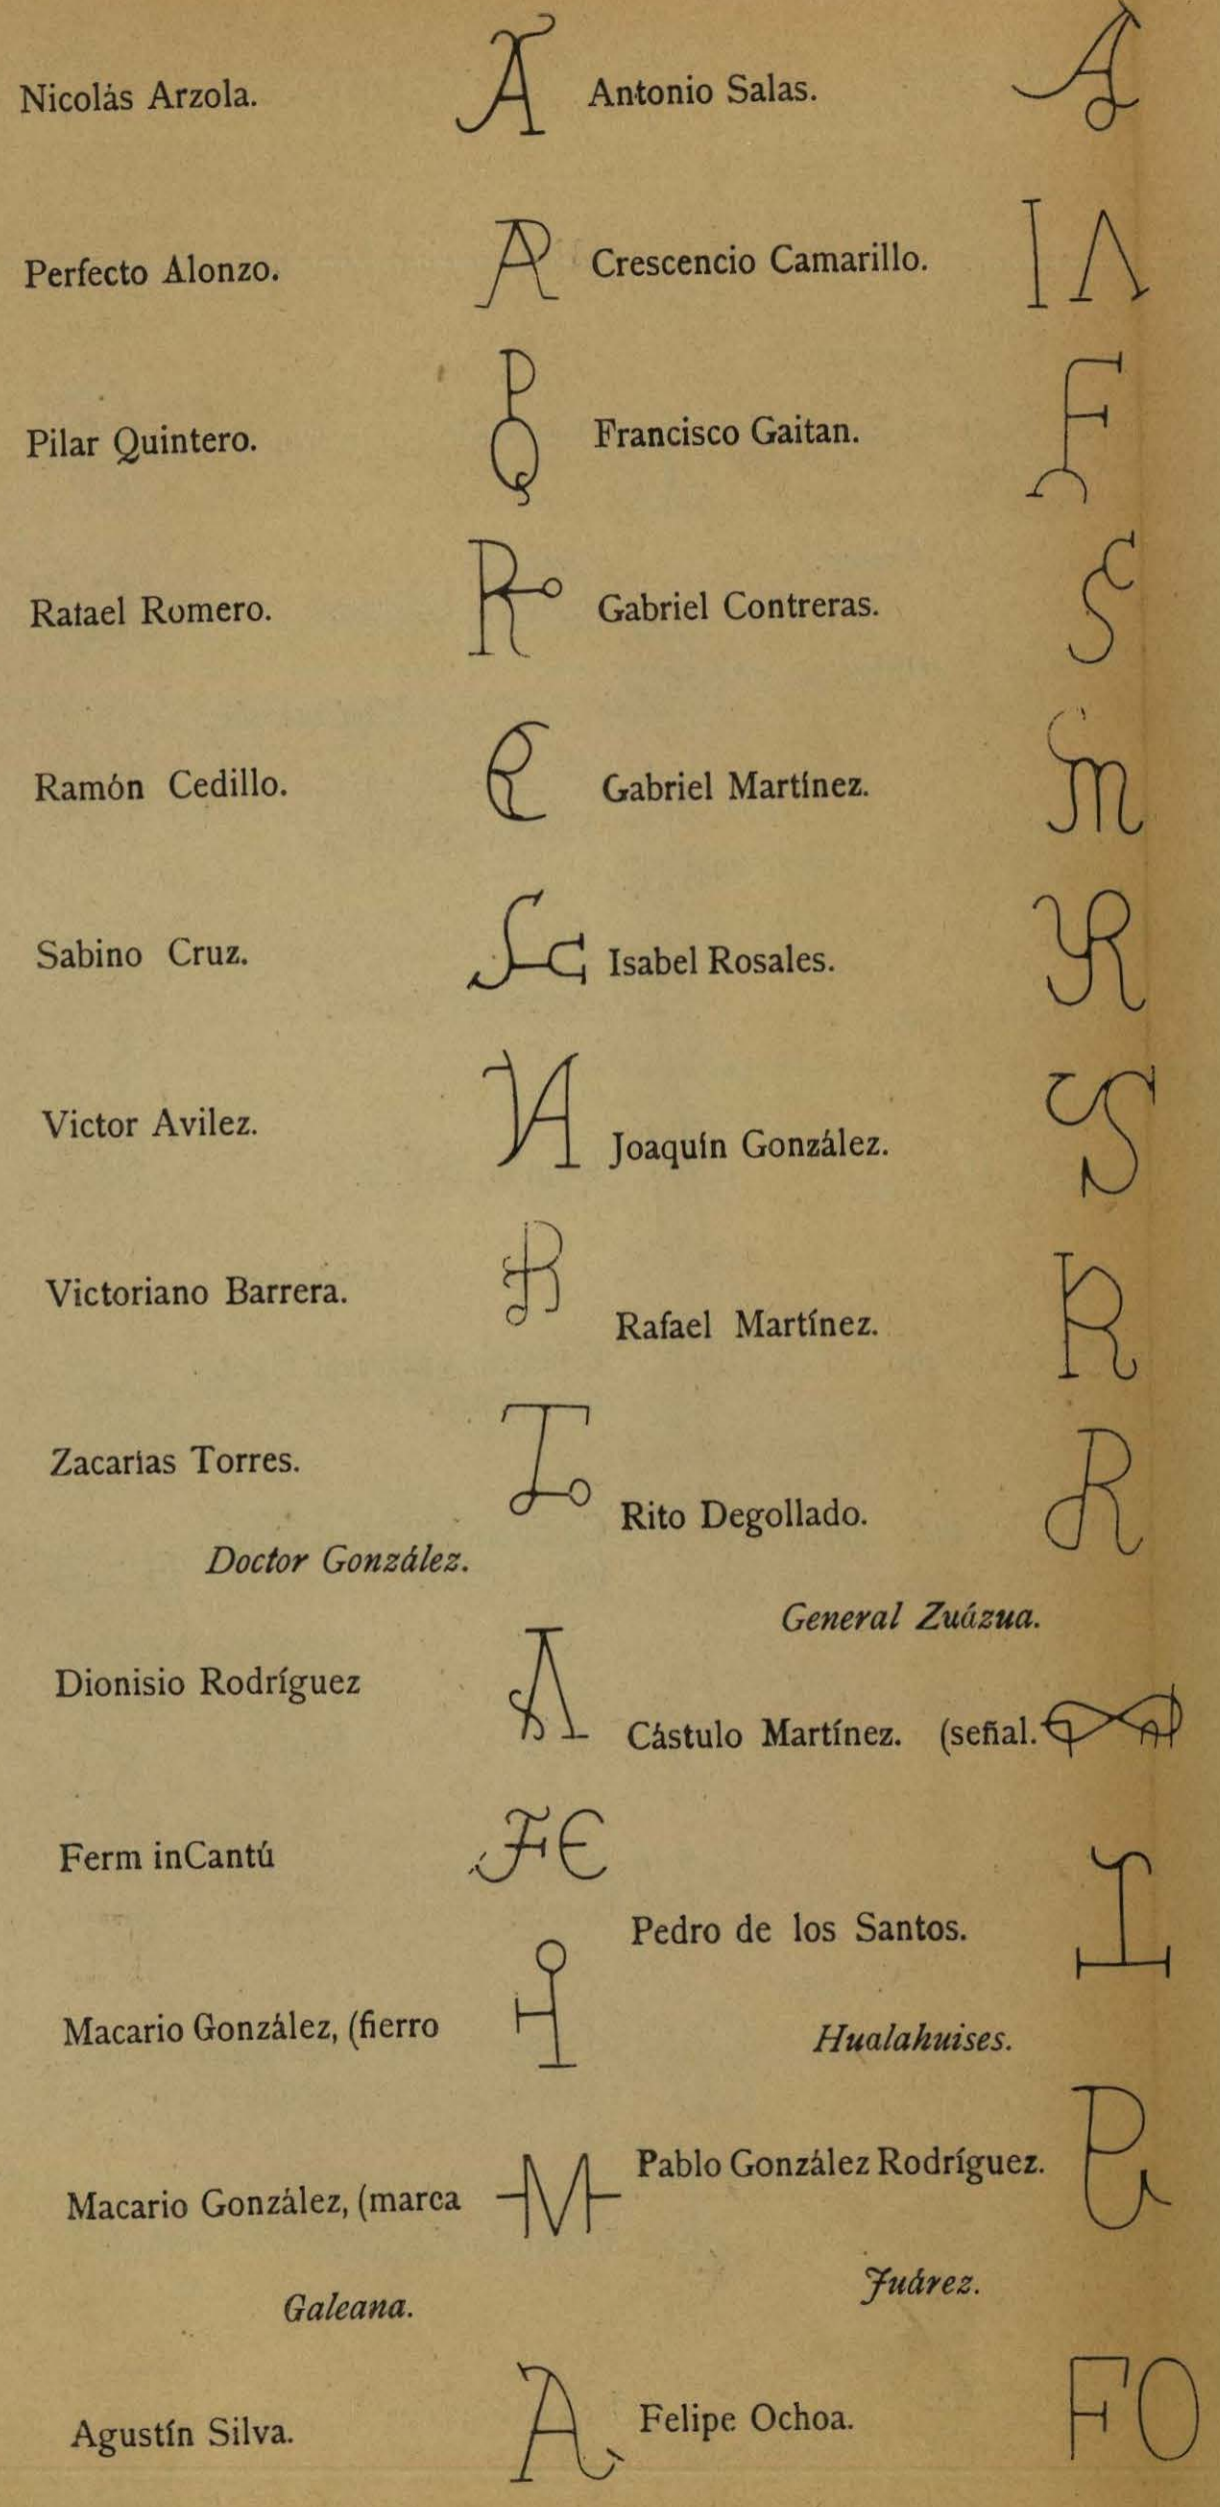 Nicolás Arzola.
Perfecto Alonzo.
Pilar Quintero.
Ratael Romero.
Ramón Cedillo.
Sabino Cruz.
Victor Avilez.
Victoriano Barrera.
Zacarias Torres.
Doctor González.
Dionisio Rodríguez
Ferm inCantú
Macario González, (fierro
Macario González, (marca
Galeana.
Agustín Silva.
Antonio Salas.
Crescencio Camarillo.
Francisco Gaitan.
Gabriel Contreras.
Gabriel Martínez.
Isabel Rosales.
Joaquín González.
Rafael Martínez.
Rito Degollado.
General Zuázua.
Cástulo Martínez. (señal.
Pedro de los Santos.
Hualahuises.
Pablo González Rodríguez.
Juárez.
Felipe Ochoa.
FO